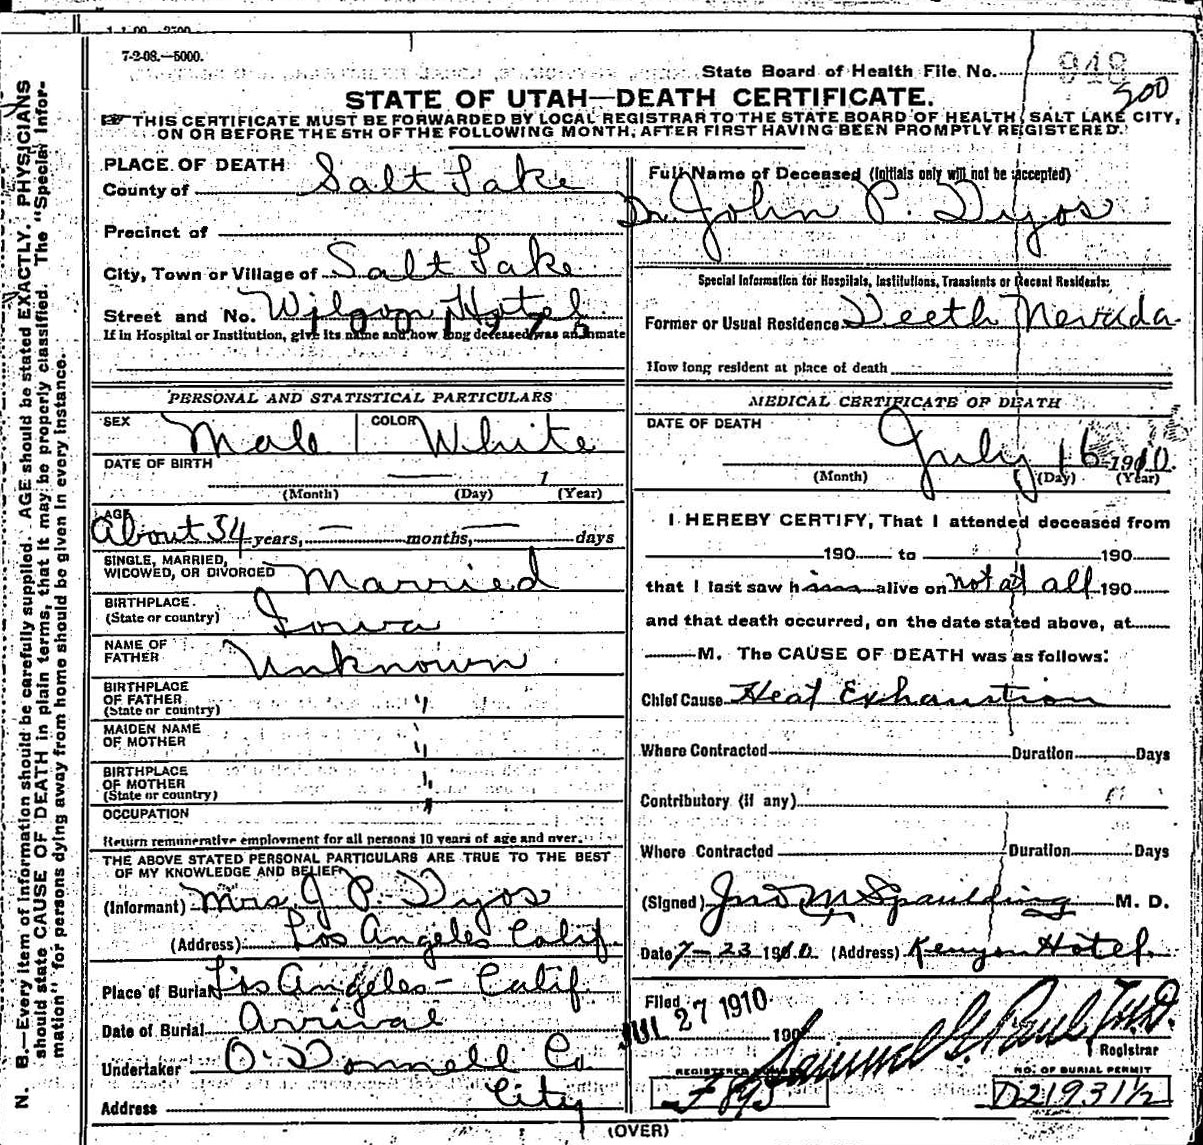 N. B.—Every item of information should be carefully supplied. AGE should be stated EXACTLY. PHYSICIANS
should state CAUSE OF DEATH in plain terms, that it may be properly classified. The "Special Infor-
mation" for persons dying away from home should be given in every instance.
7-2-08.—5000.
State Board of Health File No. 948
300
STATE OF UTAH—DEATH CERTIFICATE.
THIS CERTIFICATE MUST BE FORWARDED BY LOCAL REGISTRAR TO THE STATE BOARD OF HEALTH, SALT LAKE CITY,
ON OR BEFORE THE 5TH OF THE FOLLOWING MONTH, AFTER FIRST HAVING BEEN PROMPTLY REGISTERED.
PLACE OF DEATH
County of Salt Lake
Precinct of
City, Town or Village of Salt Lake
Street and No. Wilson Hotel
If in Hospital or Institution, give its name and how long deceased was an inmate
Full Name of Deceased (Initials only will not be accepted)
Dr. John P. Dyos
Special Information for Hospitals, Institutions, Transients or Recent Residents:
Former or Usual Residence Deeth Nevada
How long resident at place of death
PERSONAL AND STATISTICAL PARTICULARS
SEX Male COLOR White
DATE OF BIRTH — 1
(Month) (Day) (Year)
AGE
About 54 years, — months, — days
SINGLE, MARRIED,
WIDOWED, OR DIVORCED Married
BIRTHPLACE
(State or country) Iowa
NAME OF
FATHER Unknown
BIRTHPLACE
OF FATHER "
(State or country)
MAIDEN NAME
OF MOTHER "
BIRTHPLACE
OF MOTHER "
(State or country)
OCCUPATION "
Return remunerative employment for all persons 10 years of age and over.
THE ABOVE STATED PERSONAL PARTICULARS ARE TRUE TO THE BEST
OF MY KNOWLEDGE AND BELIEF
(Informant) Mrs J P. Dyos
(Address) Los Angeles Calif.
Place of Burial Los Angeles - Calif.
Date of Burial Arrival
Undertaker O'Donnell Co
Address City
MEDICAL CERTIFICATE OF DEATH
DATE OF DEATH
July 16 1910.
(Month) (Day) (Year)
I HEREBY CERTIFY, That I attended deceased from
190 to 190
that I last saw him alive on not at all 190
and that death occurred, on the date stated above, at
M. The CAUSE OF DEATH was as follows:
Chief Cause Heat Exhaustion
Where Contracted Duration Days
Contributory (if any)
Where Contracted Duration Days
(Signed) Jno M Spaulding M. D.
Date 7-23 1910. (Address) Kenyon Hotel.
Filed JUL 27 1910 190
Samuel G. Paul M.D.
Registrar
REGISTERED NUMBER
NO. OF BURIAL PERMIT
D21931½
(OVER)